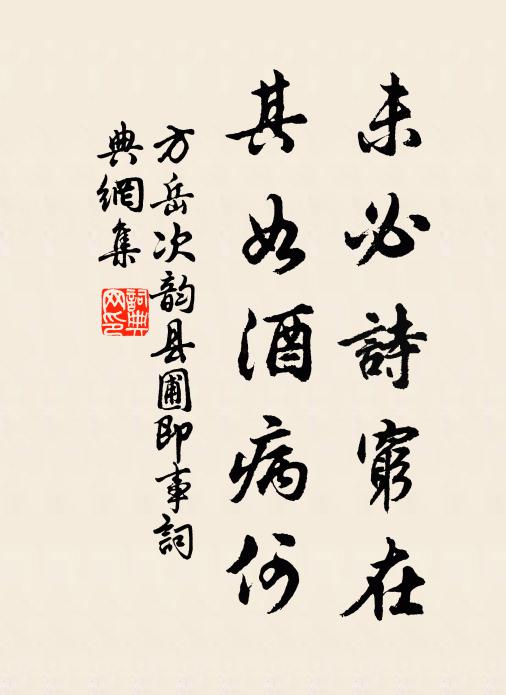 未必詩窮在
其如酒病何
方岳次韵县圃即事詞
典網集
詞典網印